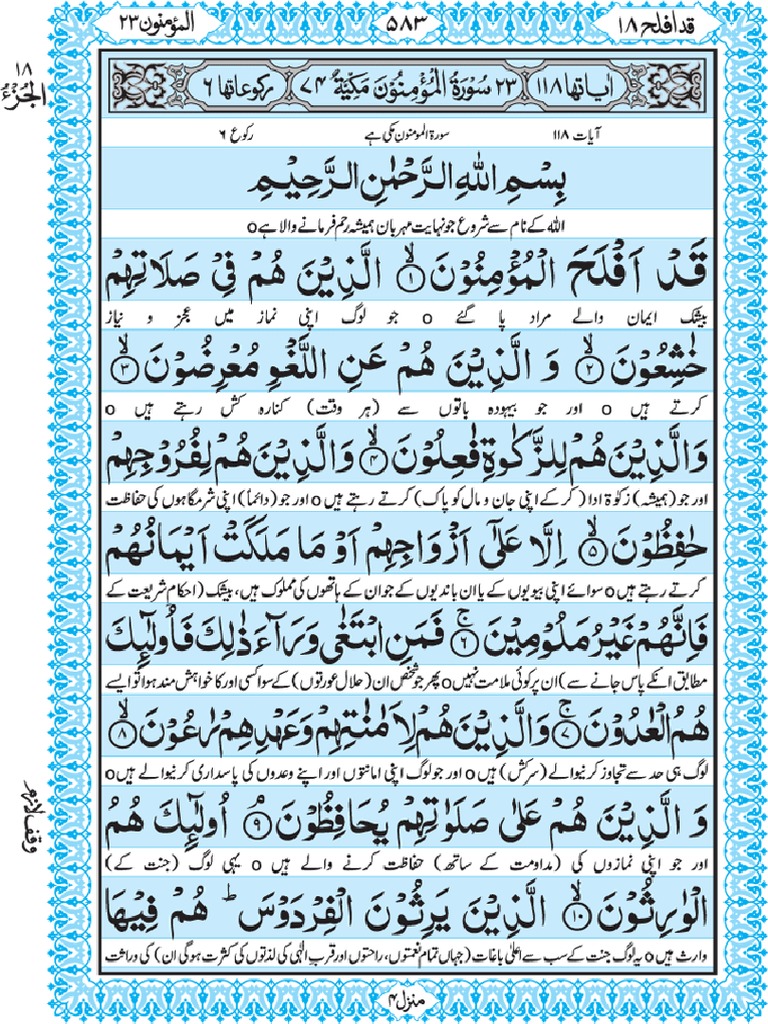 قد افلح ۱۸
۵۸۳
المؤمنون ۲۳
۱۸
الجزء
اٰیاتها ۱۱۸ ۲۳ سُوْرَةُ الْمُؤْمِنُوْنَ مَكِّیَّةٌ ۷۴ رکوعاتها ۶
آیات ۱۱۸ سورۃ المومنون مکی ہے رکوع ۶
بِسْمِ اللّٰهِ الرَّحْمٰنِ الرَّحِیْمِ
اللہ کے نام سے شروع جو نہایت مہربان ہمیشہ رحم فرمانے والا ہے o
قَدْ اَفْلَحَ الْمُؤْمِنُوْنَ ۙ۱ الَّذِیْنَ هُمْ فِیْ صَلَاتِهِمْ
بیشک ایمان والے مراد پا گئے o جو لوگ اپنی نماز میں عجز و نیاز
خٰشِعُوْنَ ۙ۲ وَ الَّذِیْنَ هُمْ عَنِ اللَّغْوِ مُعْرِضُوْنَ ۙ۳
کرتے ہیں o اور جو بیہودہ باتوں سے (ہر وقت) کنارہ کش رہتے ہیں o
وَالَّذِیْنَ هُمْ لِلزَّكٰوةِ فٰعِلُوْنَ ۙ۴ وَالَّذِیْنَ هُمْ لِفُرُوْجِهِمْ
اور جو (ہمیشہ) زکوٰۃ ادا (کر کے اپنی جان و مال کو پاک) کرتے رہتے ہیں o اور جو (دائماً) اپنی شرمگاہوں کی حفاظت
حٰفِظُوْنَ ۙ۵ اِلَّا عَلٰۤی اَزْوَاجِهِمْ اَوْ مَا مَلَكَتْ اَیْمَانُهُمْ
کرتے رہتے ہیں o سوائے اپنی بیویوں کے یا ان باندیوں کے جو ان کے ہاتھوں کی مملوک ہیں، بیشک (احکامِ شریعت کے
فَاِنَّهُمْ غَیْرُ مَلُوْمِیْنَ ۚ۶ فَمَنِ ابْتَغٰی وَرَآءَ ذٰلِكَ فَاُولٰٓئِكَ
مطابق انکے پاس جانے سے) ان پر کوئی ملامت نہیں o پھر جو شخص ان (حلال عورتوں) کے سوا کسی اور کا خواہش مند ہوا تو ایسے
هُمُ الْعٰدُوْنَ ۚ۷ وَالَّذِیْنَ هُمْ لِاَمٰنٰتِهِمْ وَعَهْدِهِمْ رٰعُوْنَ ۙ۸
لوگ ہی حد سے تجاوز کرنیوالے (سرکش) ہیں o اور جو لوگ اپنی امانتوں اور اپنے وعدوں کی پاسداری کرنیوالے ہیں o
وَ الَّذِیْنَ هُمْ عَلٰی صَلَوٰتِهِمْ یُحَافِظُوْنَ ۘ۹ اُولٰٓئِكَ هُمُ
اور جو اپنی نمازوں کی (مداومت کے ساتھ) حفاظت کرنے والے ہیں o یہی لوگ (جنت کے)
وقف لازم
الْوٰرِثُوْنَ ۙ۱۰ الَّذِیْنَ یَرِثُوْنَ الْفِرْدَوْسَ ؕ هُمْ فِیْهَا
وارث ہیں o یہ لوگ جنت کے سب سے اعلیٰ باغات (جہاں تمام نعمتوں، راحتوں اور قربِ الٰہی کی لذتوں کی کثرت ہوگی ان) کی وراثت
منزل ۴